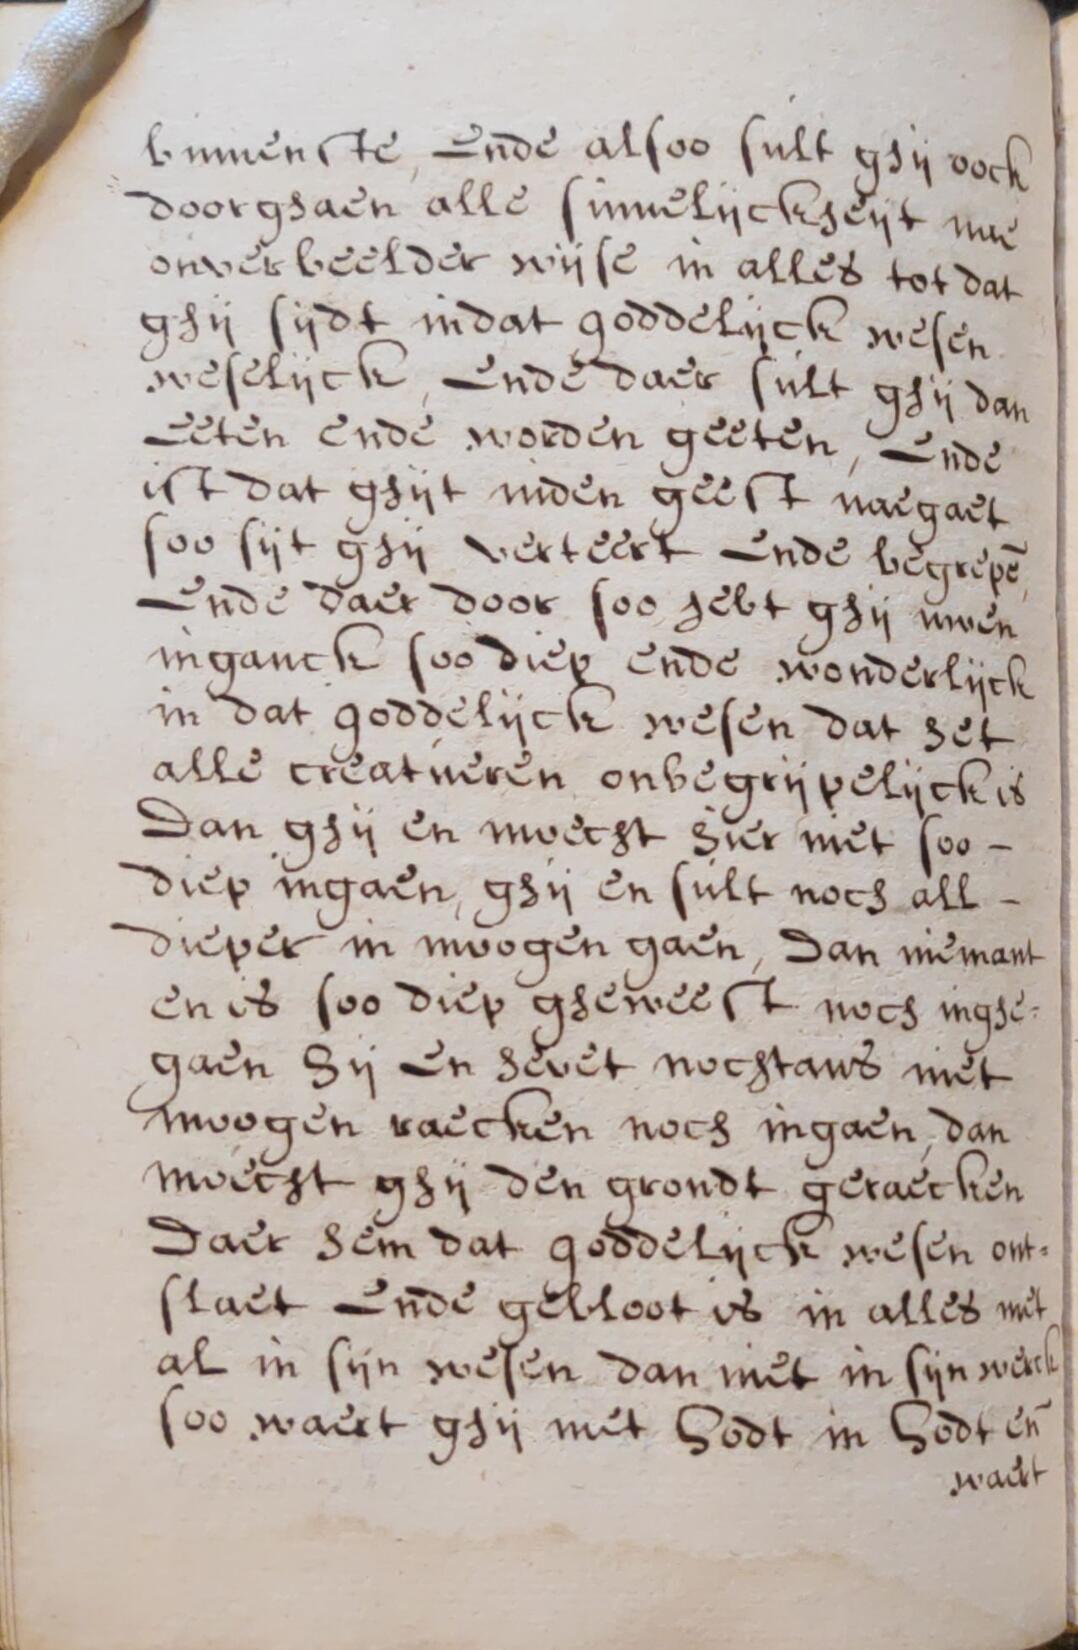 binnenste, Ende alsoo sult ghij oock
doorghaen alle sinnelijckheijt nae
onverbeelder wijse in alles tot dat
ghij sijdt indat goddelijck wesen
weselijck, Ende daer sult ghij dan
Eeten ende worden geeten, Ende
ist dat ghijt inden geest naegaet
soo sijt ghij verteert Ende begrepē,
Ende daer door soo hebt ghij uwen
inganck soo diep ende wonderlijck
in dat goddelijck wesen dat het
alle creatueren onbegrijpelijck is
Dan ghij en moecht hier niet soo –
diep ingaen, ghij en sult noch all –
dieper in moogen gaen, Dan niemant
en is soo diep gheweest noch inghe=
gaen Hij En hevet nochtans niet
moogen raecken noch ingaen, dan
moecht ghij den grondt geraecken
Daer hem dat goddelijck wesen ont=
slaet Ende gebloot is in alles met
al in sijn wesen dan niet in sijn werck
soo waert ghij met Godt in Godt en̄
waert